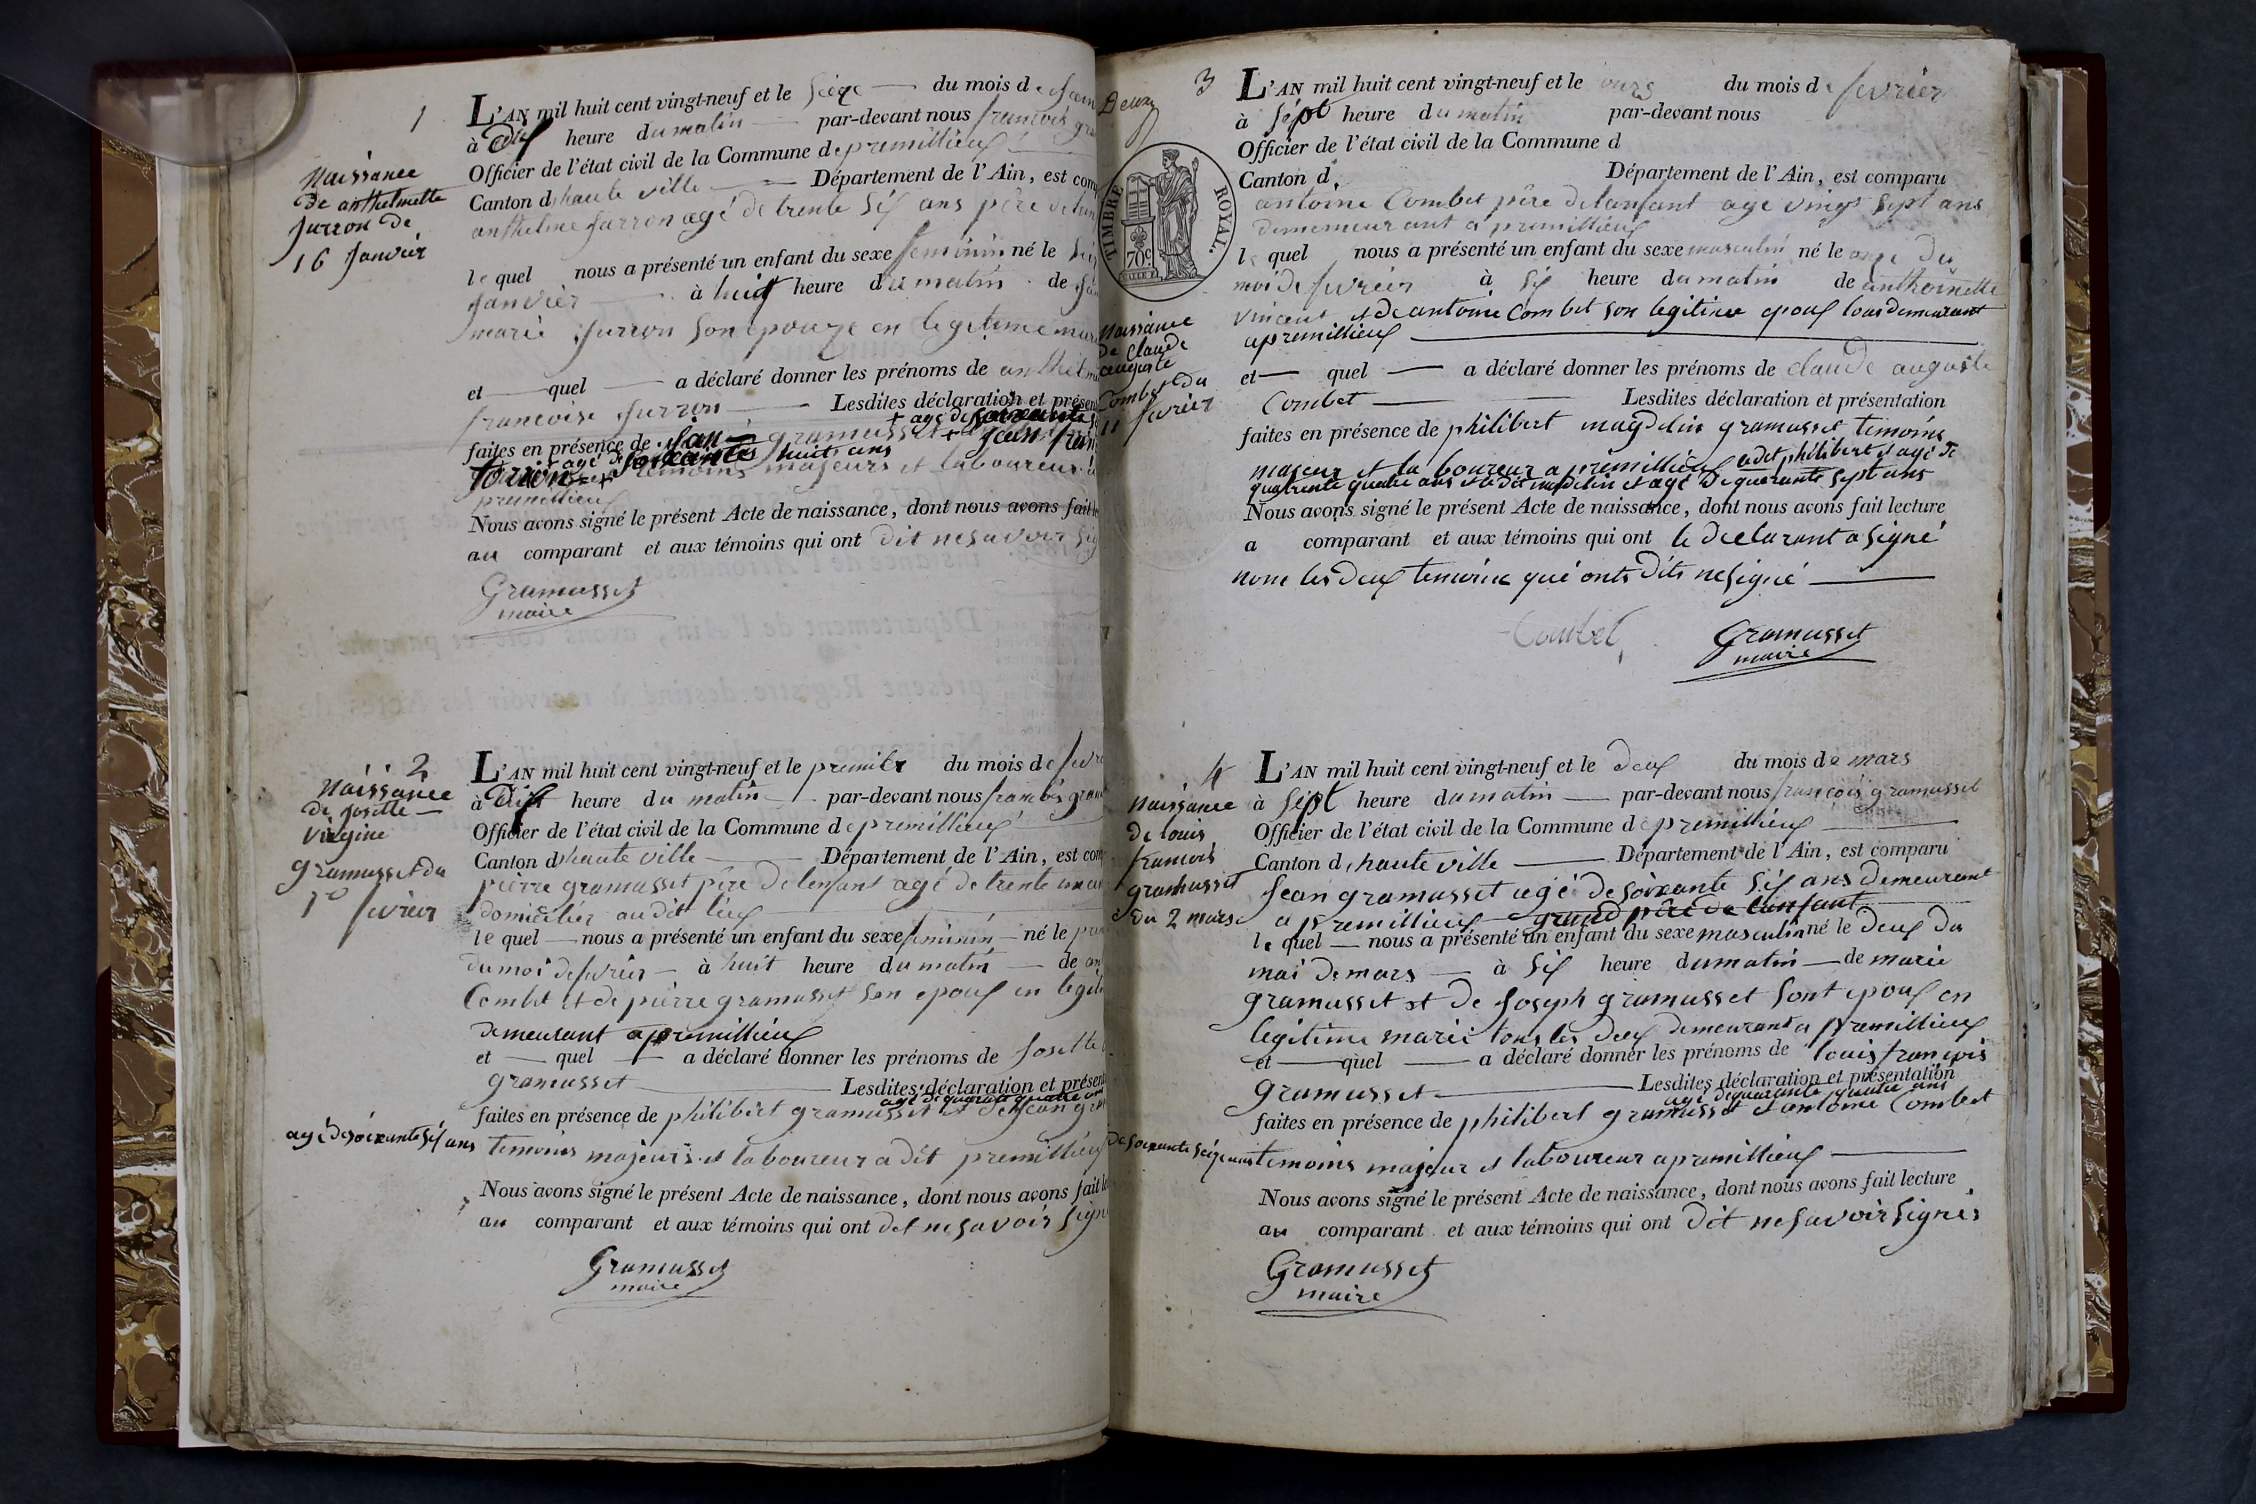 1
Naissance
de anthelmette
Jurron de
16 Janvier
L'AN mil huit cent vingt-neuf et le seize du mois de
à dix heure du matin par-devant nous francois
Officier de l'état civil de la Commune de premillieux
Canton d haute ville Département de l'Ain, est
anthelme Jurron agé de trente six ans père de
le quel nous a présenté un enfant du sexe feminin né le
Janvier à huit heure du matin de
marie Jurron son epouze en legitime
et quel a déclaré donner les prénoms de
francoise Jurron Lesdites déclaration et
+ agé de soixante
faites en présence de gramusset + jean
agé de soixante huit ans
temoins majeurs et laboureur
premillieux
Nous avons signé le présent Acte de naissance, dont nous avons fait
au comparant et aux témoins qui ont dit ne savoir
Gramusset
maire
2
Naissance
de Josette
virgine
gramusset du
1er fevrier
L'AN mil huit cent vingt-neuf et le premier du mois de
à dix heure du matin par-devant nous francois
Officier de l'état civil de la Commune de premillieux
Canton d haute ville Département de l'Ain, est
pierre gramusset père de lenfant agé de trente
domicelier au dit lieux
le quel nous a présenté un enfant du sexe feminin né le
du moi de fevrier à huit heure du matin de
Combet et de pierre gramusset son epoux en
demeurant a premillieux
et quel a déclaré donner les prénoms de Josette
gramusset Lesdites déclaration et
agé de quarante quatre ans
faites en présence de philibert gramusset et de jean
agé de soixante six ans temoins majeurs et laboureur a dit premillieux
Nous avons signé le présent Acte de naissance, dont nous avons fait
au comparant et aux témoins qui ont dit ne savoir signé
Gramusset
maire
Deux
TIMBRE ROYAL.
70c
3
Naissance
de Claude
auguste
Combet du
11 fevrier
L'AN mil huit cent vingt-neuf et le onze du mois de fevrier
à sept heure du matin par-devant nous
Officier de l'état civil de la Commune d
Canton d Département de l'Ain, est comparu
antoine Combet père de lanfant agé vingt sept ans
demeurant a premillieux
le quel nous a présenté un enfant du sexe masculin né le onze du
moi de fevrier à six heure du matin de anthoinette
vincent et de antoine Combet son legitime epoux tous demeurant
a premillieux
et quel a déclaré donner les prénoms de claude auguste
Combet Lesdites déclaration et présentation
faites en présence de philibert magdelin gramusset temoins
majeur et la boureur a premillieux ledit philibert et agé de
quatrente quatre ans et le dit magdelin et agé de quarante sept ans
Nous avons signé le présent Acte de naissance, dont nous avons fait lecture
a comparant et aux témoins qui ont le declarant a signé
nom les deux temoins qué onts dits ne signé
Combet
Gramusset
maire
4
Naissance
de louis
francois
gramusset
du 2 mars
L'AN mil huit cent vingt-neuf et le deux du mois de mars
à sept heure du matin par-devant nous francois gramusset
Officier de l'état civil de la Commune de premillieux
Canton d haute ville Département de l'Ain, est comparu
Jean gramusset agé de soixante six ans demeurant
a premillieux grand père de lanfant
le quel nous a présenté un enfant du sexe masculin né le deux du
moi de mars à six heure du matin de marie
gramusset et de Joseph gramusset sont epoux en
legitime marié tous les deux demeurant a premillieux
et quel a déclaré donner les prénoms de louis francois
gramusset Lesdites déclaration et présentation
agé de quarante quatre ans
faites en présence de philibert gramusset et antoine Combet
de soixante seize ans temoins majeur et laboureur a premillieux
Nous avons signé le présent Acte de naissance, dont nous avons fait lecture
au comparant et aux témoins qui ont dit ne savoir signer
Gramusset
maire